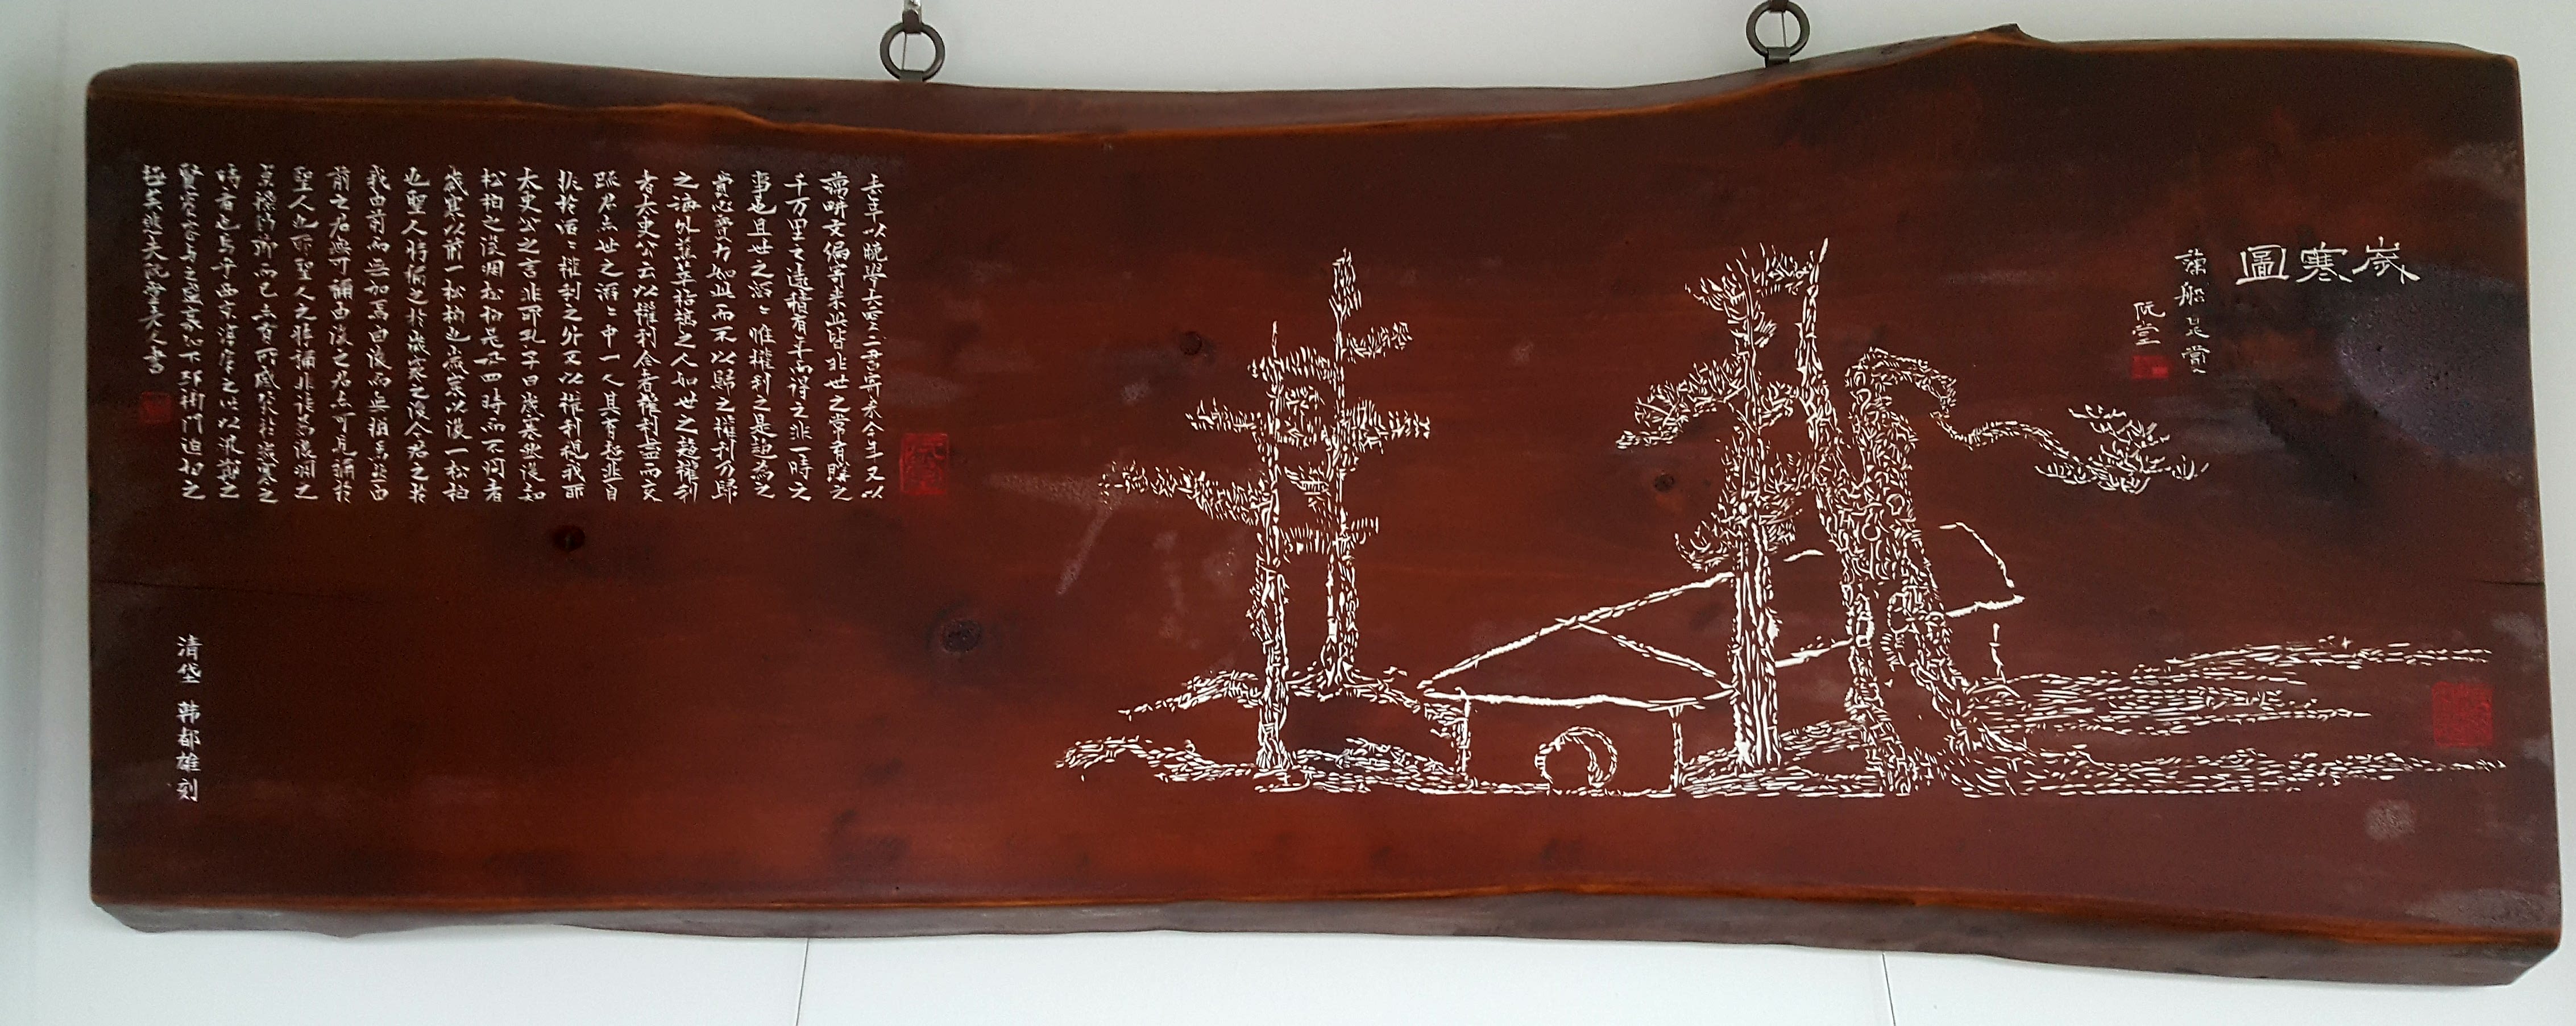 歲寒圖
藕船是賞
阮堂
去年以晚學大雲二書寄來今年又以
藕耕文編寄來此皆非世之常有購之
千万里之遠積有年而得之非一時之
事也且世之滔〻惟權利之是趨為之
費心費力如此而不以歸之權利乃歸
之海外蕉萃枯稿之人如世之趨權利
者太史公云以權利合者權利盡而交
疎君亦世之滔〻中一人其有超然自
拔於滔〻權利之外不以權利視我耶
太史公之言非耶孔子曰歲寒然後知
松柏之後凋松柏是毋四時而不凋者
歲寒以前一松柏也歲寒以後一松柏
也聖人特稱之於歲寒之後今君之於
我由前而無加焉由後而無損焉然由
前之君無可稱由後之君亦可見稱於
聖人也耶聖人之特稱非徒為後凋之
貞操勁節而已亦有所感發於歲寒之
時者也烏乎西京淳厖之世以汲鄭之
賢賓客與之盛衰如下邳榜門迫切之
極矣悲夫阮堂老人書
清垈 韩都雄刻